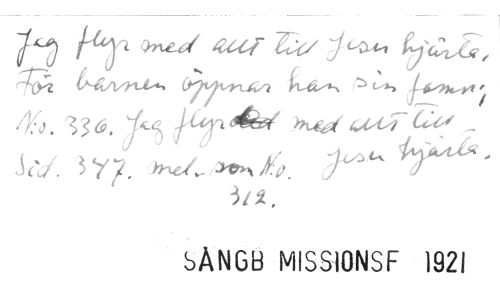 Jag flyr med allt till Jesu hjärta.
För barnen öppnar han sin famn;
No. 336. Jag flyr med allt till
Jesu hjärta.
Sid. 347. mel. som No.
312.
SÅNGB MISSIONSF 1921